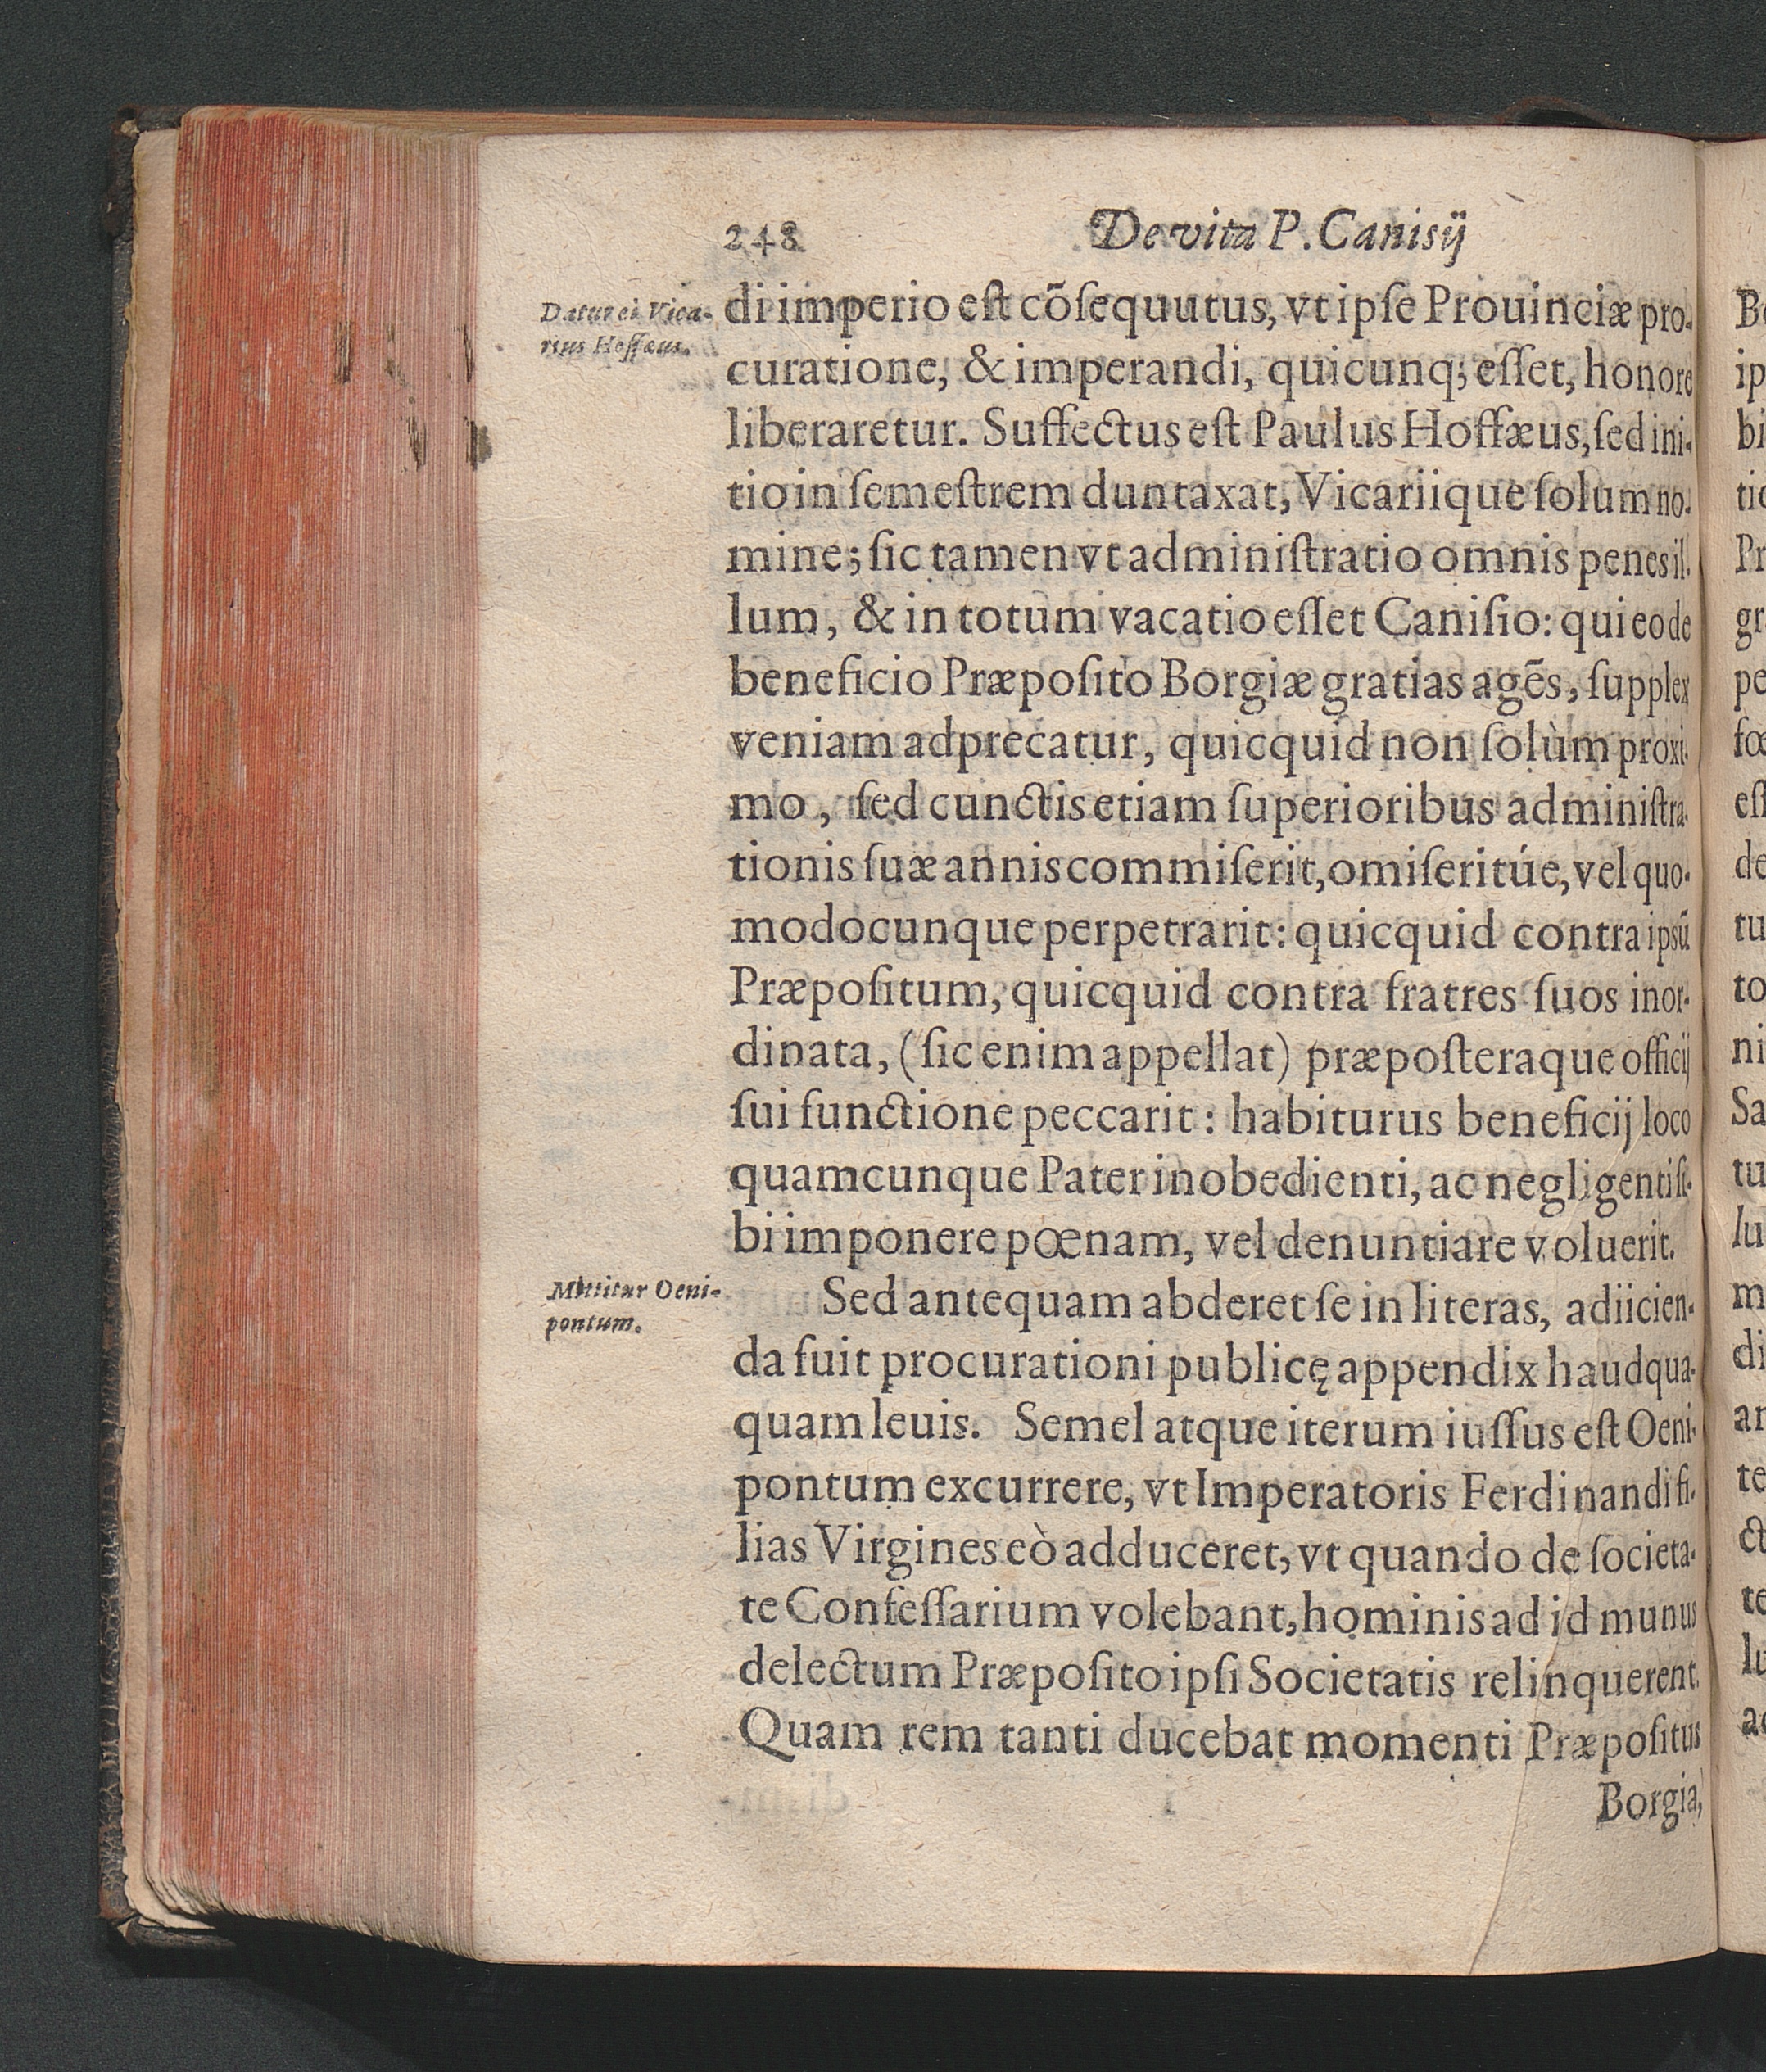 248 De vita P. Canisij
Datur ei Vica-
rius Hoffæus.
di imperio est cõsequutus, vt ipse Prouinciæ pro-
curatione, & imperandi, quicunq; esset, honore
liberaretur. Suffectus est Paulus Hoffæus, sed ini-
tio in semestrem duntaxat, Vicariique solum no-
mine; sic tamen vt administratio omnis penes il-
lum, & in totum vacatio esset Canisio: qui eo de
beneficio Præposito Borgiæ gratias agẽs, supplex
veniam adprecatur, quicquid non solùm proxi-
mo, sed cunctis etiam superioribus administra-
tionis suæ annis commiserit, omiseritúe, vel quo-
modocunque perpetrarit: quicquid contra ipsũ
Præpositum, quicquid contra fratres suos inor-
dinata, (sic enim appellat) præposteraque officij
sui functione peccarit: habiturus beneficij loco
quamcunque Pater inobedienti, ac negligenti si-
bi imponere pœnam, vel denuntiare voluerit.
Mittitur Oeni-
pontum.
Sed antequam abderet se in literas, adiicien-
da fuit procurationi publicę appendix haudqua-
quam leuis. Semel atque iterum iussus est Oeni-
pontum excurrere, vt Imperatoris Ferdinandi fi-
lias Virgines eò adduceret, vt quando de societa-
te Confessarium volebant, hominis ad id munus
delectum Præposito ipsi Societatis relinquerent.
Quam rem tanti ducebat momenti Præpositus
Borgia,